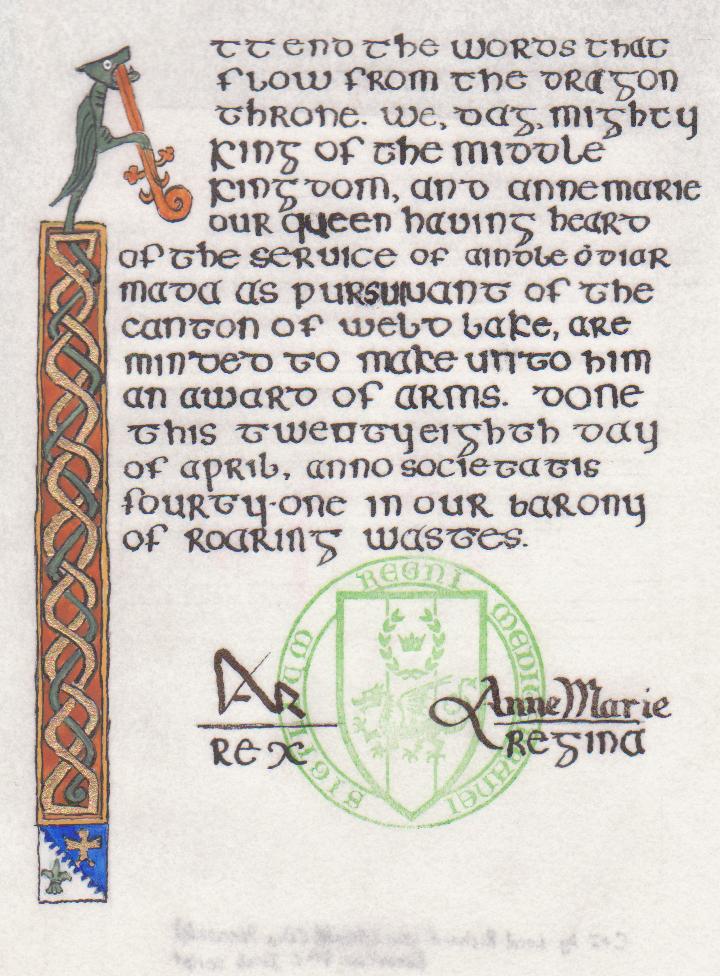 Attend the words that
flow from the Dragon
Throne. We, Dag, mighty
King of the Middle
Kingdom, and Annemarie
our Queen having heard
of the service of Aindle ó Diar
mada as Pursuivant of the
Canton of Weld Lake, are
minded to make unto him
an Award of Arms. Done
this twenty eighth day
of April, Anno Societatis
fourty-one in our Barony
of Roaring Wastes.
SIGILLUM REGNI MEDITERRANEI
AnneMarie
Rex
Regina